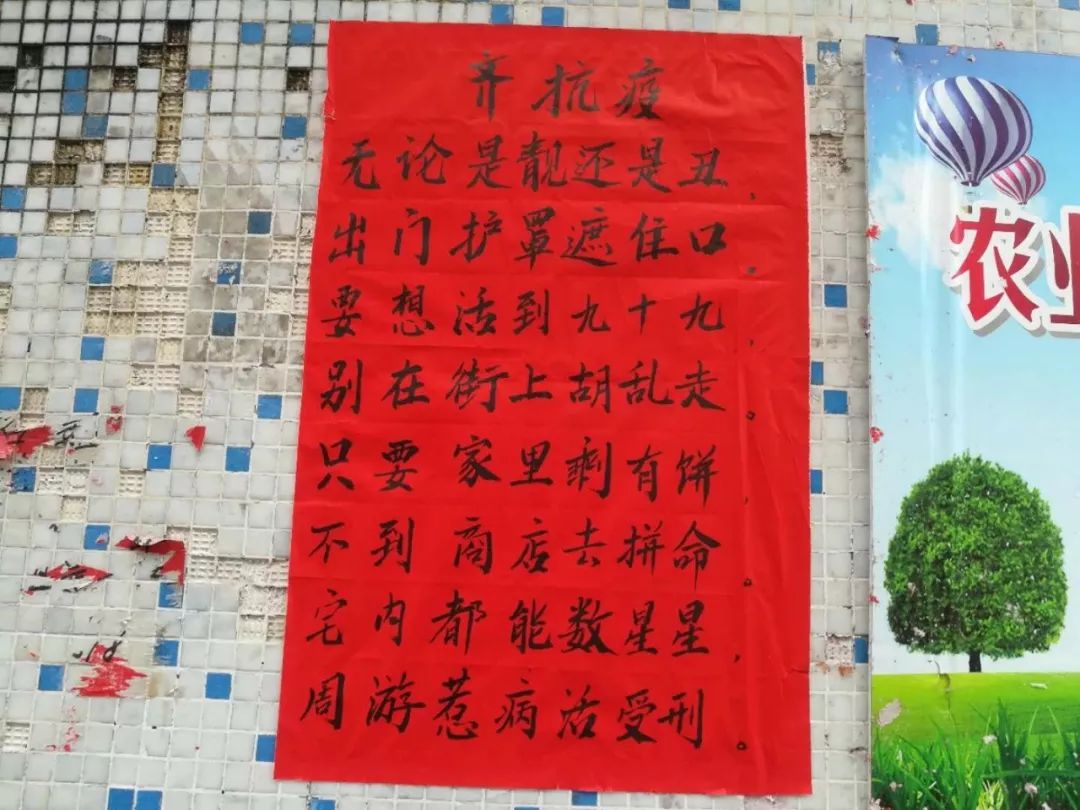 齐抗疫
无论是靓还是丑，
出门护罩遮住口，
要想活到九十九，
别在街上胡乱走。
只要家里剩有饼，
不到商店去拼命，
宅内都能数星星，
周游惹病活受刑。
农业